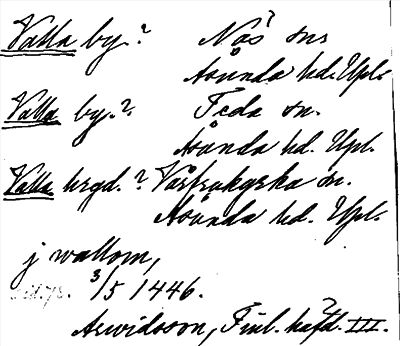 Valla by? Näs sn ?
Åsunda hd. Upl.
Valla by.? Teda sn.
Åsunda hd. Upl.
Valla hrgd.? Vårfrukyrka sn.
Åsunda hd. Upl.
j wallom,
3/5 1446.
Arwidsson, Finl. häfd. III.